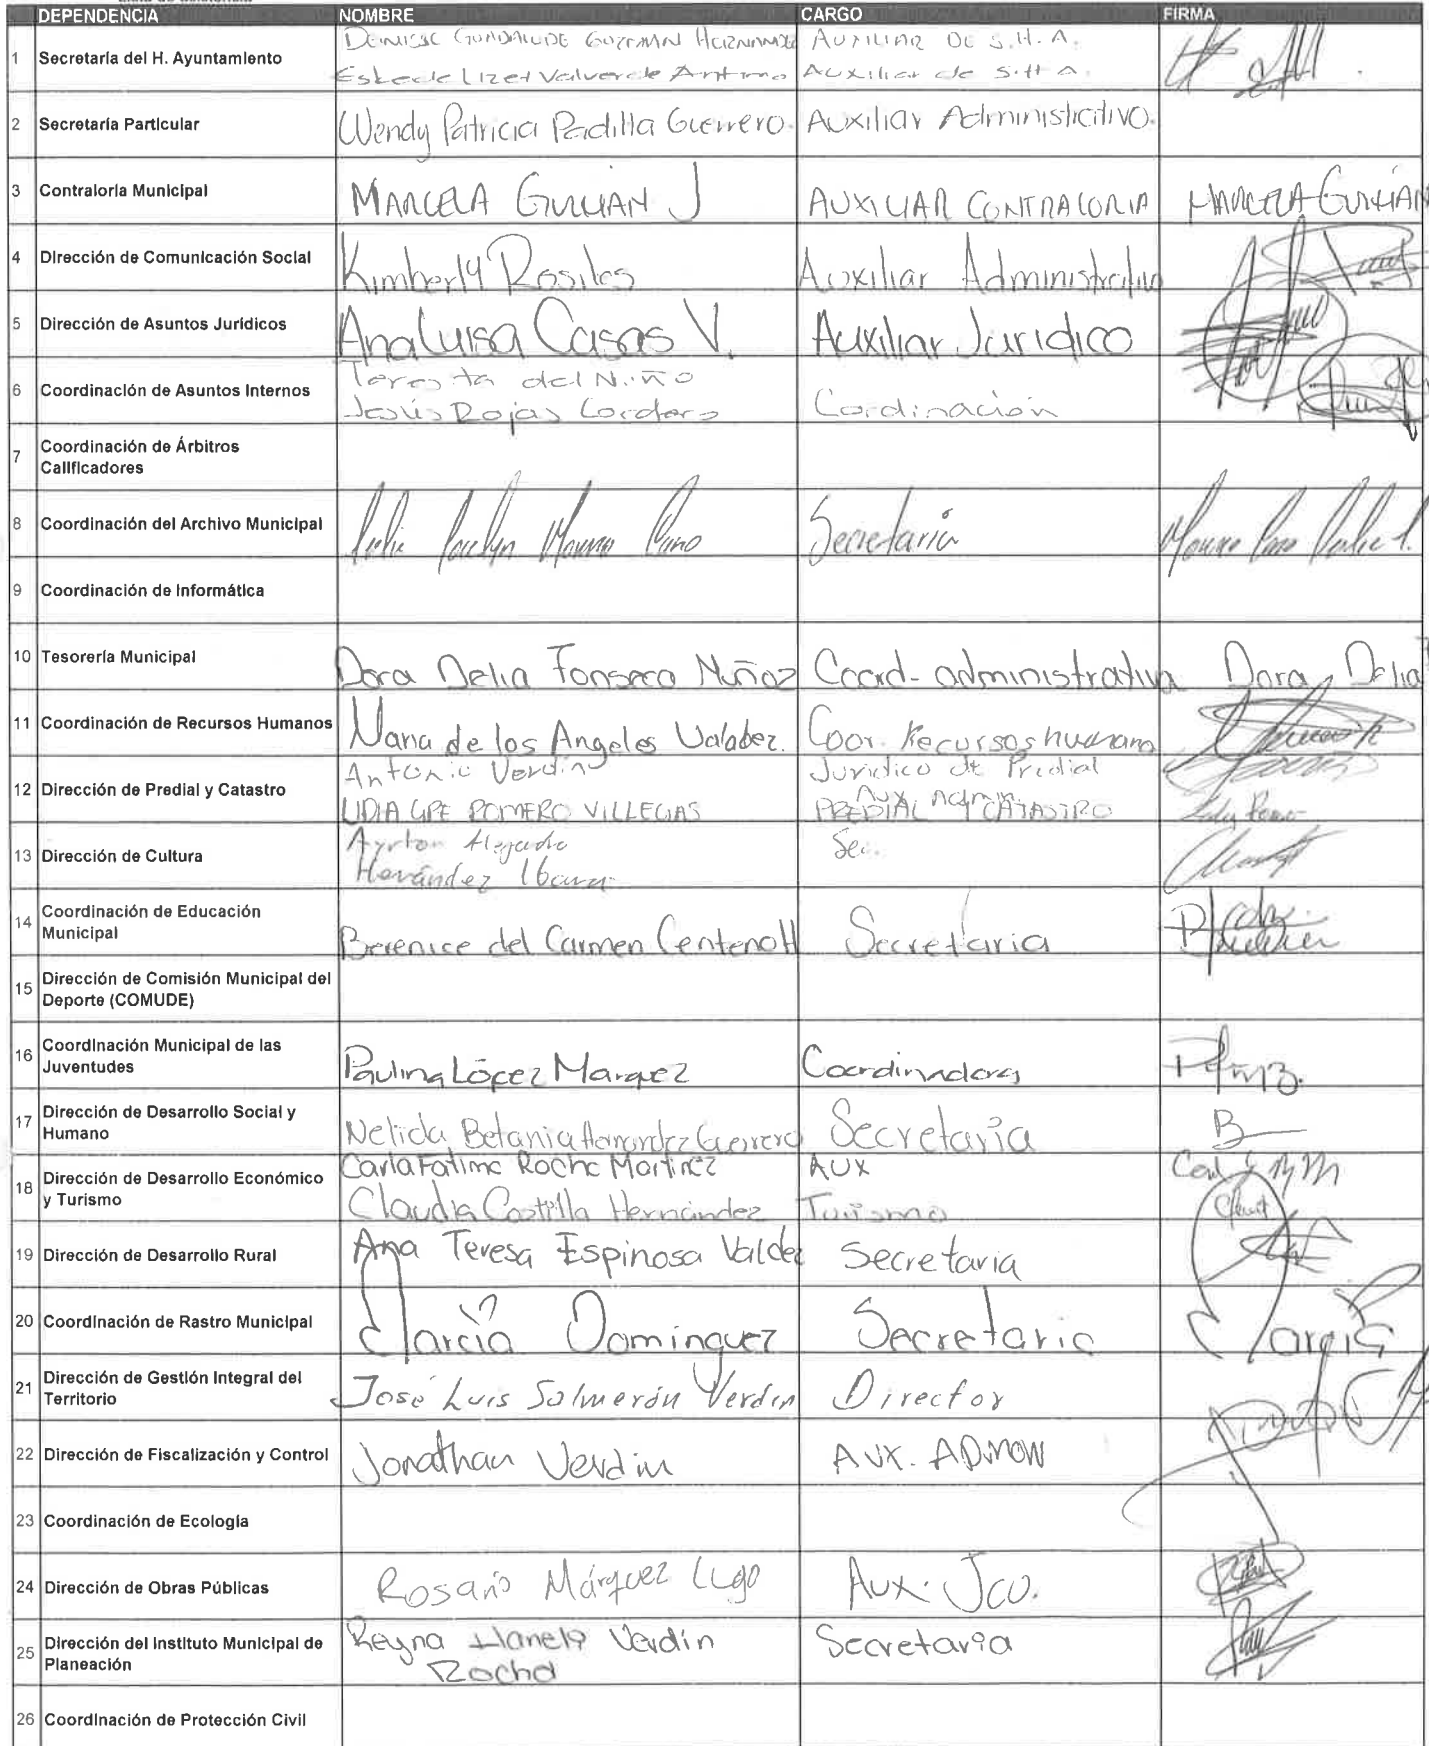 DEPENDENCIA NOMBRE CARGO FIRMA
1 Secretaría del H. Ayuntamiento
GUADALUPE GUZMAN HERNANDEZ AUXILIAR DE S.H.A.
Lizet Valverde Auxiliar de S.H.A.
2 Secretaría Particular Wendy Patricia Padilla Guerrero. Auxiliar Administrativo.
3 Contraloría Municipal MARCELA GUILLIAN J AUXILIAR CONTRALORIA MARCELA GUILLIAN
4 Dirección de Comunicación Social Kimberly Rosiles Auxiliar Administrativo
5 Dirección de Asuntos Jurídicos Ana Luisa Casas V. Auxiliar Jurídico
6 Coordinación de Asuntos Internos
Teresita del Niño
Jesús Rojas Cordero Cordinación
7 Coordinación de Árbitros
Calificadores
8 Coordinación del Archivo Municipal Secretaria
9 Coordinación de Informática
10 Tesorería Municipal Dora Delia Fonseca Muñoz Coord-administrativa Dora Delia
11 Coordinación de Recursos Humanos Maria de los Angeles Valadez. Coor. Recursos humano
12 Dirección de Predial y Catastro
Antonio Verdin Juridico de Predial
Aux Admin.
LIDIA GPE ROMERO VILLEGAS PREDIAL Y CATASTRO
13 Dirección de Cultura
Ayrton Sec.
Hernández Ibarra
14 Coordinación de Educación
Municipal
Berenice del Carmen Centeno H Secretaria
15 Dirección de Comisión Municipal del
Deporte (COMUDE)
16 Coordinación Municipal de las
Juventudes
Paulina López Marquez Coordinadora
17 Dirección de Desarrollo Social y
Humano
Nelida Betania Hernandez Guerrero Secretaria
18 Dirección de Desarrollo Económico
y Turismo
Carla Fatima Rocha Martinez AUX
Claudia Castillo Hernández Turismo
19 Dirección de Desarrollo Rural Ana Teresa Espinosa Valdez Secretaria
20 Coordinación de Rastro Municipal Marcia Dominguez Secretaria Marcia
21 Dirección de Gestión Integral del
Territorio
José Luis Salmerón Verdin Director
22 Dirección de Fiscalización y Control Jonathan Verdin AUX. ADMON
23 Coordinación de Ecología
24 Dirección de Obras Públicas Rosario Márquez Lugo Aux. Jco.
25 Dirección del Instituto Municipal de
Planeación
Reyna Verdin Secretaria
Rocha
26 Coordinación de Protección Civil